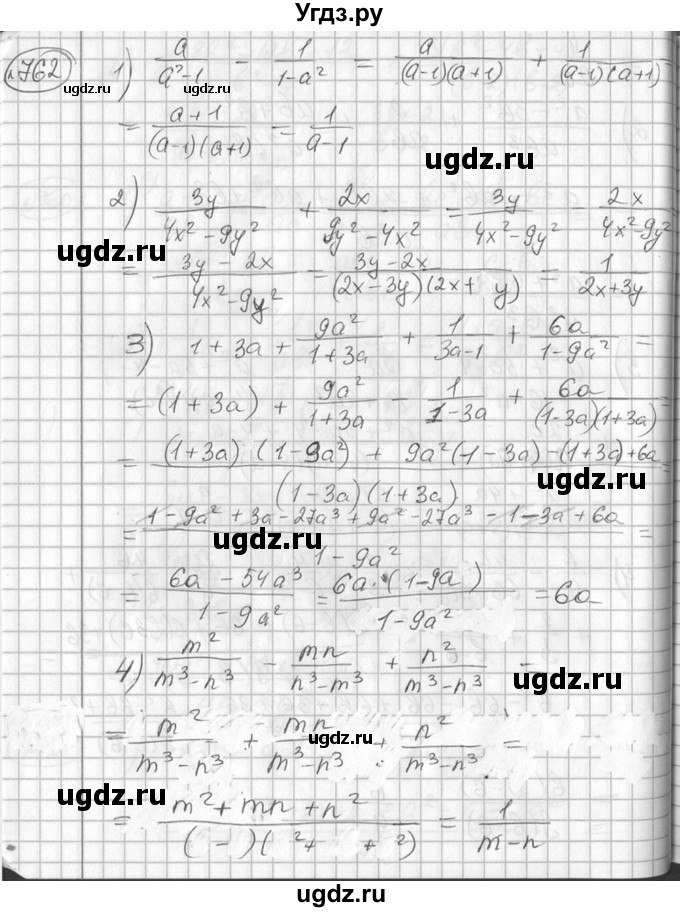 Угдз.ру
№762 1) a/(a²-1) - 1/(1-a²) = a/((a-1)(a+1)) + 1/((a-1)(a+1))
ugdz.ru ugdz.ru
= (a+1)/((a-1)(a+1)) = 1/(a-1)
ugdz.ru
2) 3y/(4x²-9y²) + 2x/(9y²-4x²) = 3y/(4x²-9y²) - 2x/(4x²-9y²)
ugdz.ru ugdz.ru
= (3y-2x)/(4x²-9y²) = (3y-2x)/((2x-3y)(2x+ y)) = 1/(2x+3y)
3) 1+3a + 9a²/(1+3a) + 1/(3a-1) + 6a/(1-9a²) =
= (1+3a) + 9a²/(1+3a) - 1/(1-3a) + 6a/((1-3a)(1+3a)) =
= ((1+3a)(1-9a²) + 9a²(1-3a) - (1+3a) + 6a)/((1-3a)(1+3a)) =
ugdz.ru
= (1-9a²+3a-27a³+9a²-27a³-1-3a+6a)/(1-9a²) =
ugdz.ru
= (6a-54a³)/(1-9a²) = (6a·(1-9a))/(1-9a²) = 6a
4) m²/(m³-n³) - mn/(n³-m³) + n²/(m³-n³) =
ugdz.ru
= m²/(m³-n³) + mn/(m³-n³) + n²/(m³-n³) =
ugdz.ru
ugdz.ru
= (m²+mn+n²)/(( - )( ²+ + ²)) = 1/(m-n)
ugdz.ru ugdz.ru
ugdz.ru